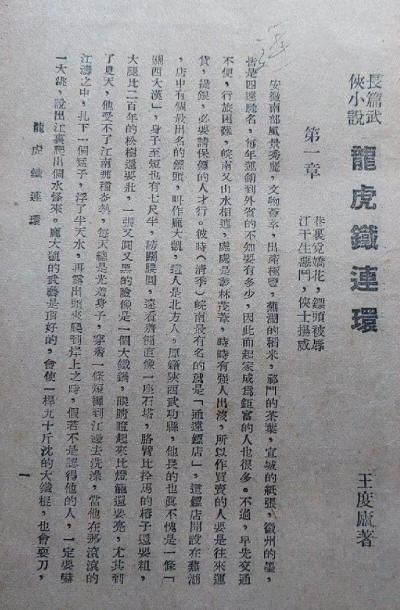 長篇武
俠小說
龍虎鐵連環
王度廬著
第一章
巷裏覓嬌花,鏢頭被辱
江干生惡鬥,俠士揚威
安徽南部風景秀麗,文物薈萃,出產極豐,蕪湖的稻米,祁門的茶葉,宣城的紙張,徽州的墨,
皆是四遠馳名,每年運銷到外省的不知要有多少,因此而起家成爲鉅富的人也很多。不過,早先交通
不便,行旅困難,皖南又山水相連,處處是叢林茂葦,時時有强人出沒,所以作買賣的人要是往來運
貨,提銀,必要請保鏢的人才行。彼時(清季)皖南最有名的就是「通遠鏢店」,這鏢店開設在蕪湖
,店中有個最出名的鏢頭,叫作龐大凱,這人是北方人,原籍陝西武功縣,他長的也眞不愧是一條「
關西大漢」,身子至短也有七尺半,膀闊腰圓,遠看齊膀直像一座石塔,胳臂比拴馬的樁子還要粗,
大腿比二百年的松樹還要壯,一張又圓又黑的臉膛是一個大鐵鍋,眼睛瞪起來比燈籠還要亮,尤其到
了夏天,他受不了江南那種奇熱,每天總是光着身子,穿着一條短褲到江邊去洗澡,當他在那滾滾的
江濤之中,扎下一個猛子,浮了半天水,再露出頭來爬到岸上之時,假若不是認得他的人,一定要嚇
一大跳,說出江裏爬出個水怪來。龐大凱的武藝是頂好的,會使一桿九十斤沈的大鐵棍,也會耍刀,
龍虎鐵連環
一